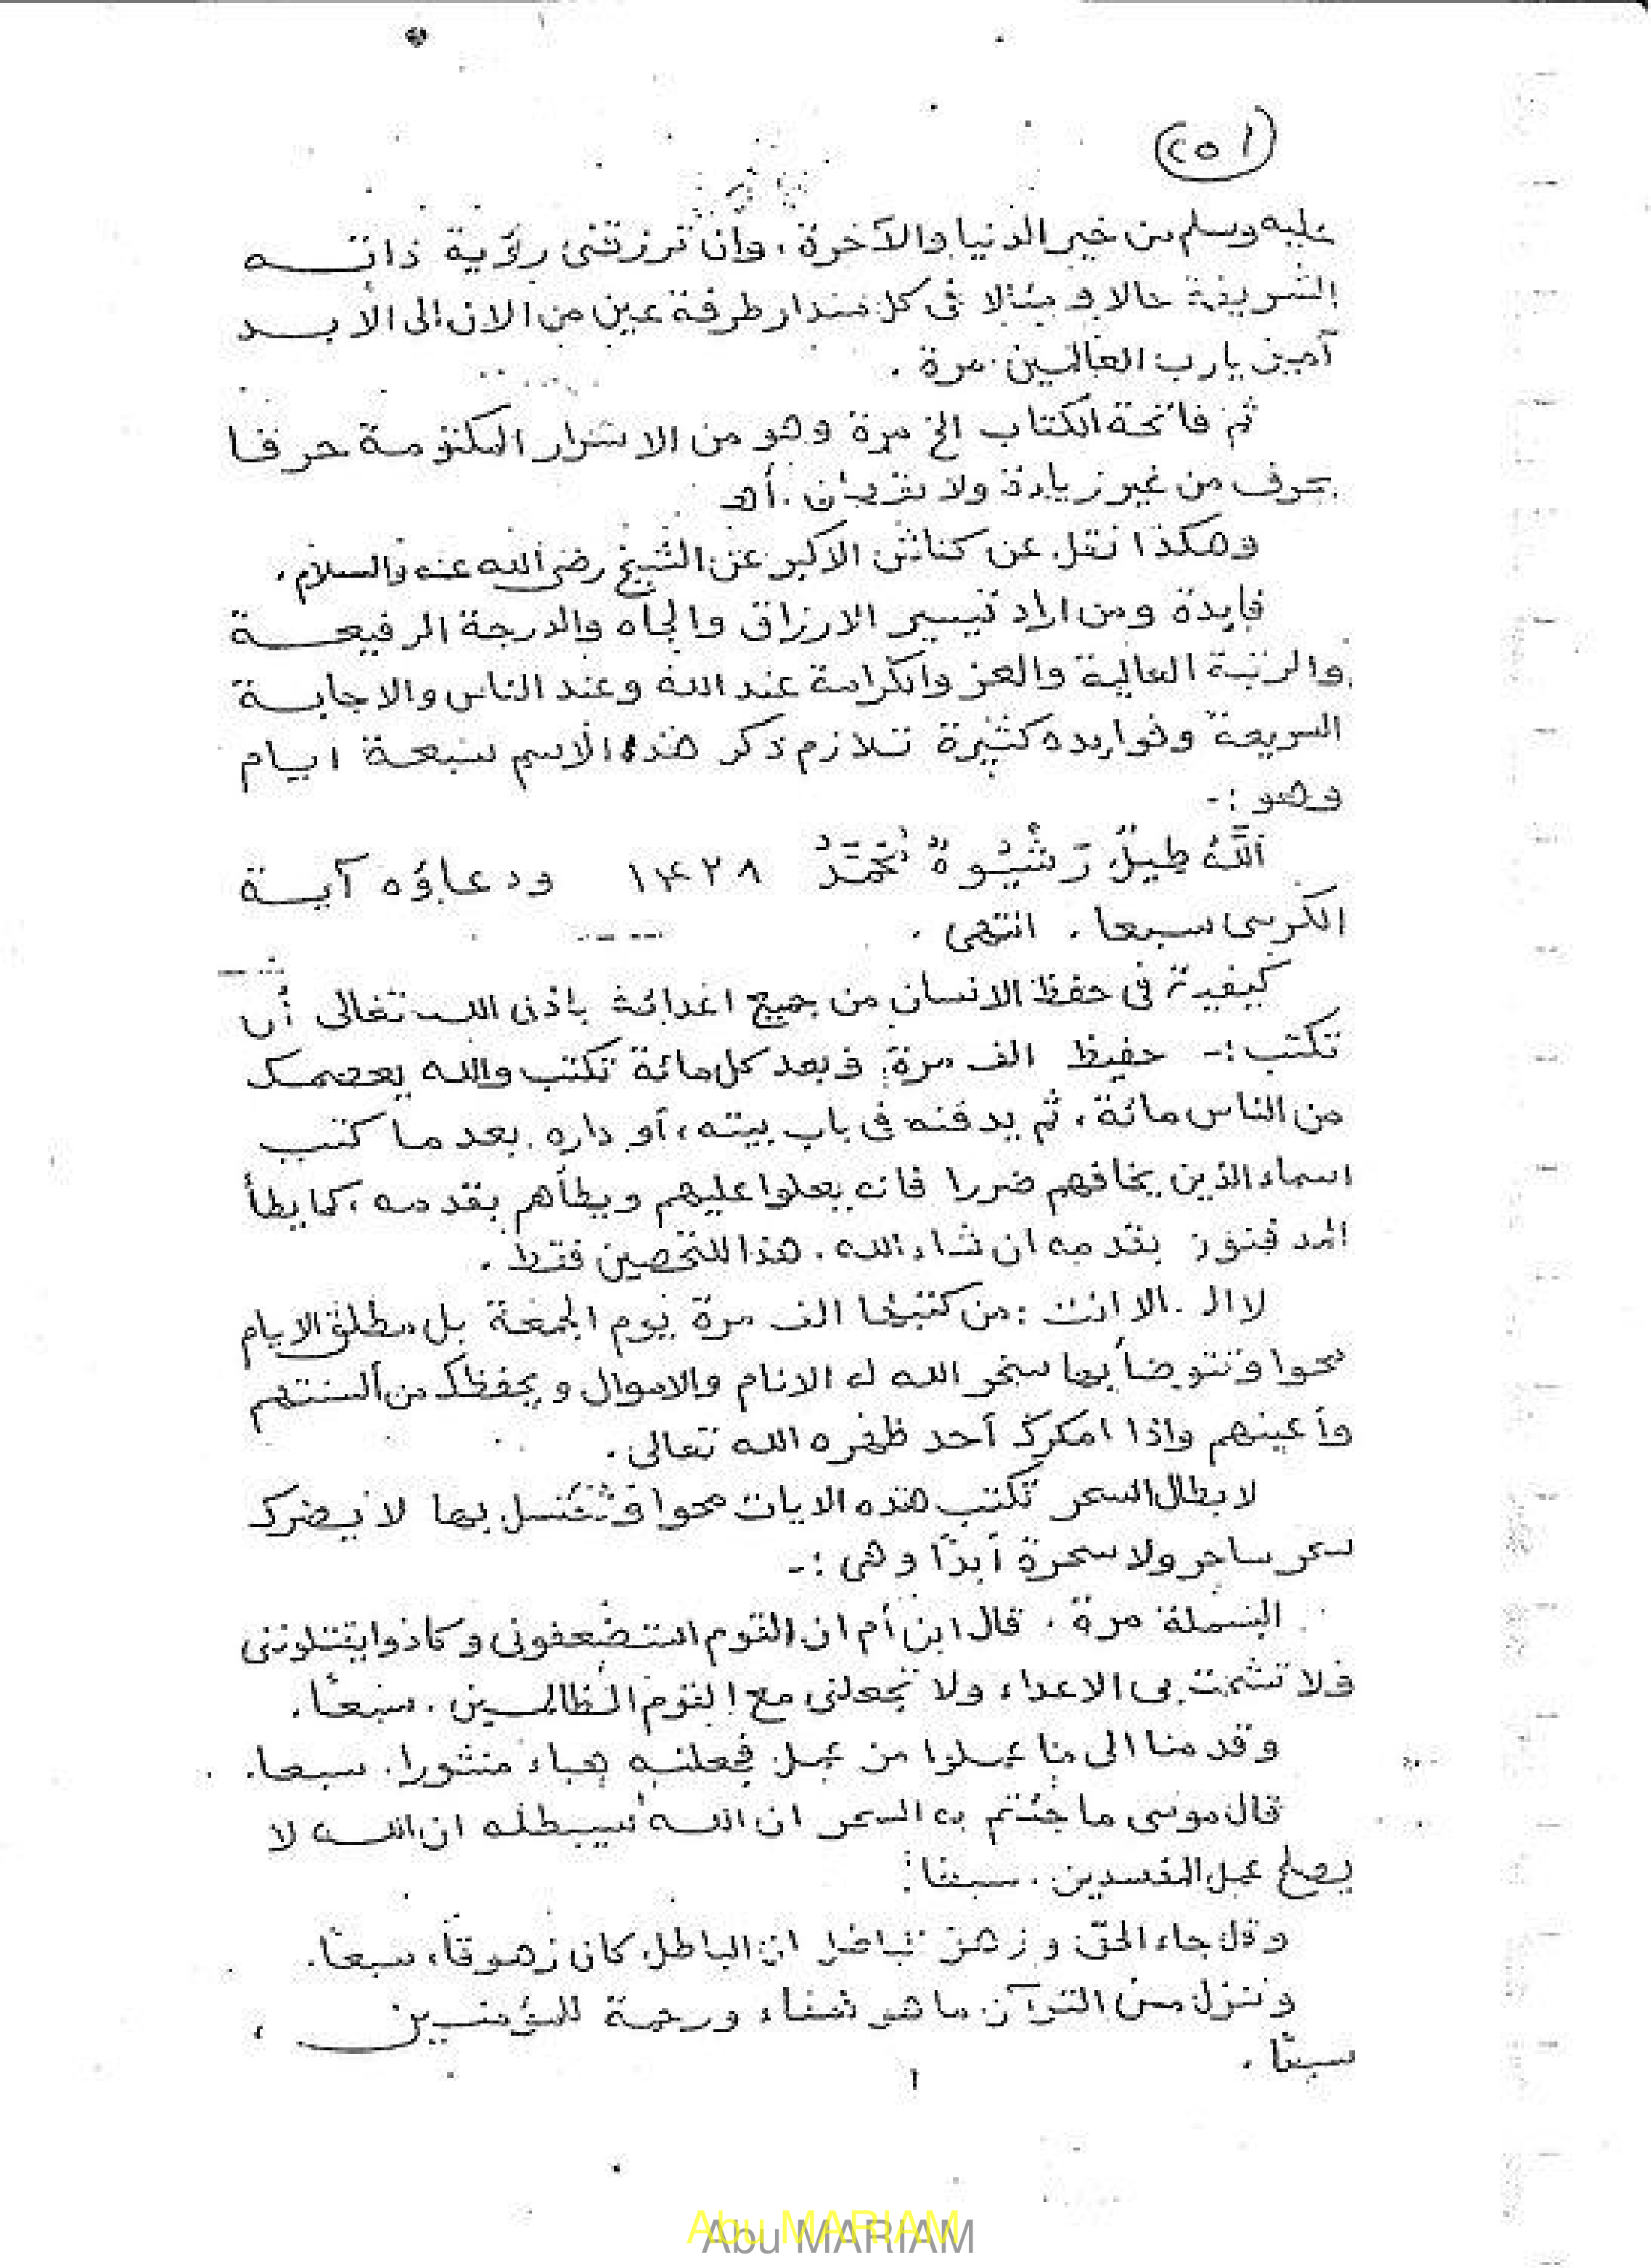 (٢٥١)
عليه وسلم من خير الدنيا والآخرة، وان ترزقنى رؤية ذاته
الشريفة حالا و مثالا فى كل مقدار طرفة عين من الان الى الأبد
آمين يارب العالمين مرة .
ثم فاتحة الكتاب الخ مرة وهو من الاسرار المكتومة حرفا
بحرف من غير زيادة ولا نقصان . أهـ
وهكذا نقل عن كناش الاكبر عن الشيخ رضى الله عنه والسلام .
فايدة ومن اراد تيسير الارزاق والجاه والدرجة الرفيعة
والرتبة العالية والعز والكرامة عند الله وعند الناس والاجابة
السريعة وفوايده كثيرة تلازم ذكر هذه الاسم سبعة ايام
وهو :-
ودعاؤه آية
الكرسى سبعا . انتهى .
كيفية فى حفظ الانسان من جميع اعدائه باذن الله تعالى أن
تكتب :- حفيظ الف مرة، وبعد كل مائة تكتب والله يعصمك
من الناس مائة، ثم يدفنه فى باب بيته، أو داره بعد ما كتب
اسماء الذين يخافهم ضررا فانه يعلوا عليهم ويطأهم بقدمه، كما يطأ
المدفون بقدمه ان شاء الله . هذا للتحصين فقط .
لا اله الا انت : من كتبها الف مرة يوم الجمعة بل مطلق الايام
محوا وتتوضأ بها سخر الله له الانام والاموال ويحفظك من ألسنتهم
وأعينهم واذا امكرك أحد ظفره الله تعالى .
لابطال السحر تكتب هذه الايات محوا وتغتسل بها لا يضرك
سحر ساحر ولا سحرة أبدًا وهى :-
البسملة مرة . قال ابن أم ان القوم استضعفونى وكادوا يقتلوننى
فلا تشمت بى الاعداء ولا تجعلنى مع القوم الظالمين . سبعًا .
وقدمنا الى ما عملوا من عمل فجعلنه هباء منثورا . سبعا .
قال موسى ما جئتم به السحر ان الله سيبطله ان الله لا
يصلح عمل المفسدين . سبعا .
وقل جاء الحق وزهق الباطل ان الباطل كان زهوقا، سبعًا .
وننزل من القرآن ما هو شفاء ورحمة للمؤمنين ،
سبعًا .
١
Abu MARIAM